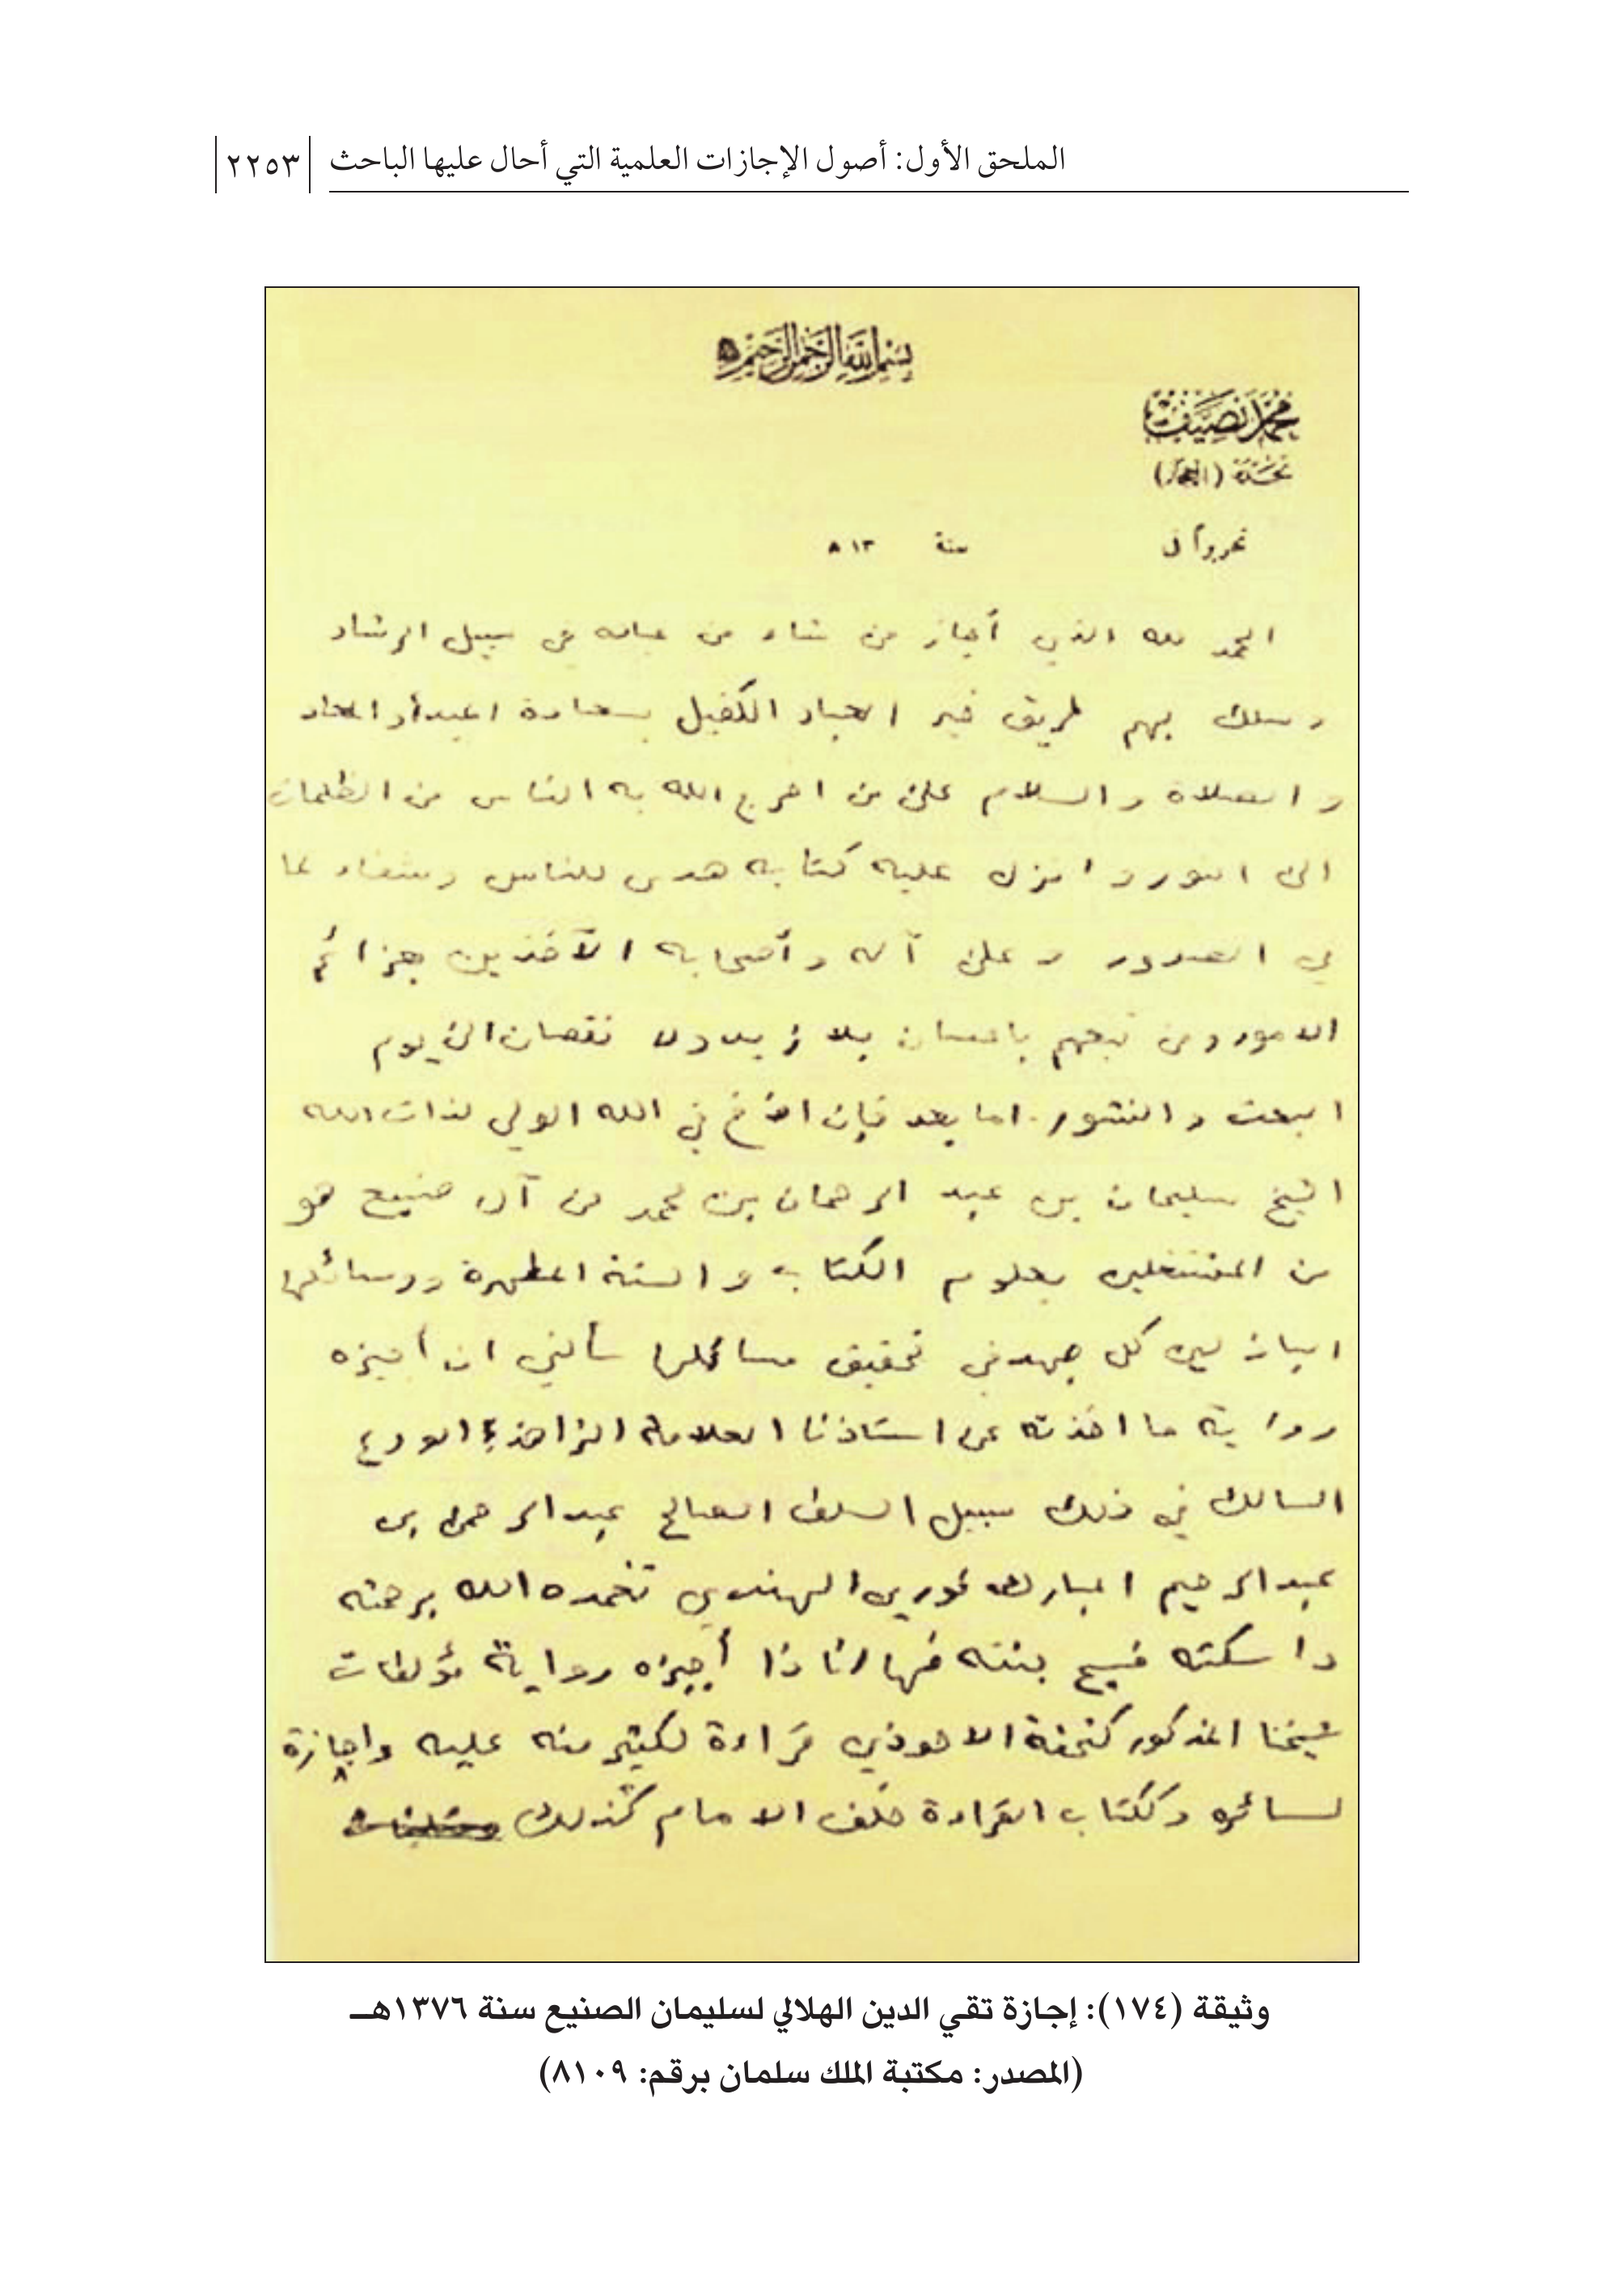 الملحق الأول: أصول الإجازات العلمية التي أحال عليها الباحث | ٢٢٥٣
بسم الله الرحمن الرحيم
محمد نصيف
بجدة (الحجاز)
تحريراً في سنة ١٣ ٨
الحمد لله الذي أجاز من شاء من عباده في سبيل الرشاد
وسلك بهم طريق خير العباد الكفيل بسعادة المبدأ والمعاد
والصلاة والسلام على من اخرج الله به الناس من الظلمات
الى النور وانزل عليه كتابه هدى للناس وشفاء لما
في الصدور وعلى آله وأصحابه الآخذين بعزائم
الامور ومن تبعهم باحسان بلا زيد ولا نقصان الى يوم
البعث والنشور. اما بعد فإن الأخ في الله الولي لذات الله
الشيخ سليمان بن عبد الرحمان بن محمد من آل صنيع هو
من المشتغلين بعلوم الكتاب والسنة المطهرة ووسائلها
الباذلين كل جهد في تحقيق مسائلها سألني ان أجيزه
رواية ما اخذته عن استاذنا العلامة الزاهد الورع
السالك في ذلك سبيل السلف الصالح عبد الرحمن بن
عبد الرحيم المباركفوري الهندي تغمده الله برحمته
واسكنه فسيح جنته فها انا ذا أجيزه رواية مؤلفات
شيخنا المذكور كتحفة الاحوذي قراءة لكثير منه عليه واجازة
لسائره وككتاب القراءة خلف الامام كذلك
وثيقة (١٧٤): إجازة تقي الدين الهلالي لسليمان الصنيع سنة ١٣٧٦هـ
(المصدر: مكتبة الملك سلمان برقم: ٨١٠٩)